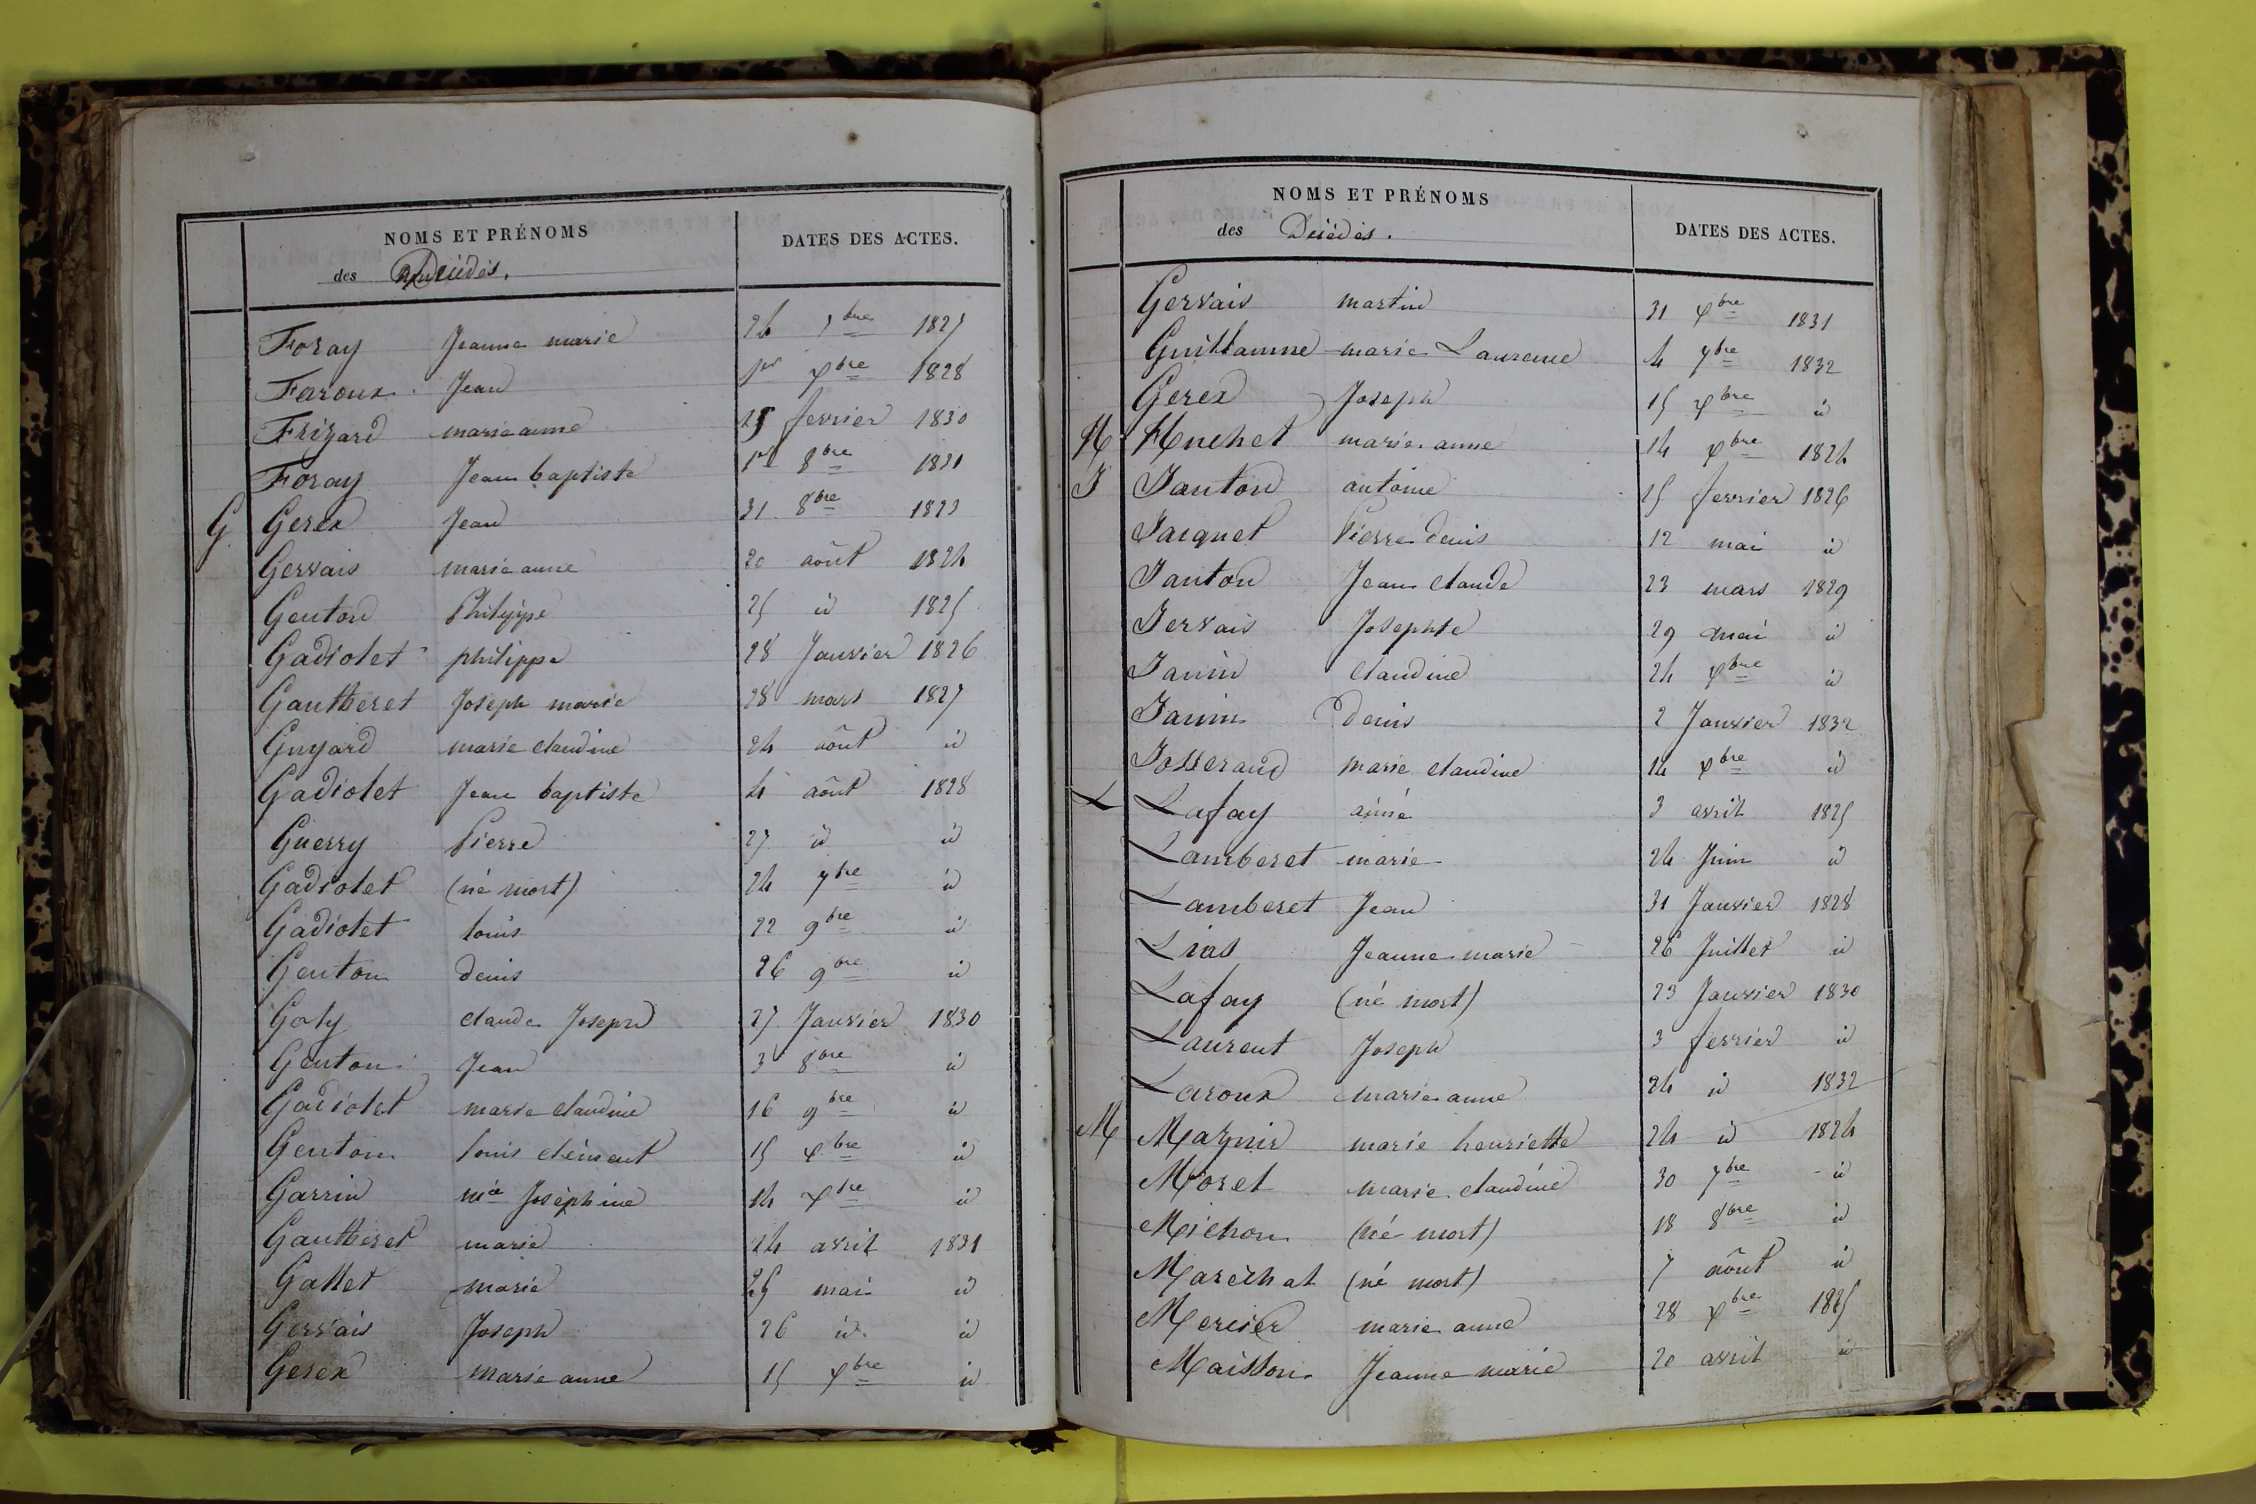 NOMS ET PRÉNOMS DATES DES ACTES.
des Décédés.
Foray Jeanne marie 24 7bre 1825
Faroux Jean 1er Xbre 1828
Frizard marie anne 25 fevrier 1830
Foray Jean baptiste 1er 8bre 1831
G Gerex Jean 31 8bre 1823
Gervais marie anne 20 août 1824
Genton Philippe 25 id 1825
Gadiolet philippe 28 Janvier 1826
Gautheret Joseph marie 28 mars 1827
Guyard marie claudine 24 août id
Gadiolet Jean baptiste 4 août 1828
Guerry Pierre 27 id id
Gadiolet (né mort) 24 7bre id
Gadiolet louis 22 9bre id
Genton denis 26 9bre id
Goly claude Joseph 27 Janvier 1830
Genton Jean 3 8bre id
Gadiolet marie claudine 16 9bre id
Genton louis clément 15 Xbre id
Garrin mie Joséphine 14 Xbre id
Gautheret marie 24 avril 1831
Gallet marie 25 mai id
Gervais Joseph 26 id id
Gerex marie anne 15 Xbre id
NOMS ET PRÉNOMS DATES DES ACTES.
des Décédés.
Gervais martin 31 Xbre 1831
Guillaume marie Laurence 4 7bre 1832
Gerex Joseph 15 Xbre id
H Huchet marie anne 14 Xbre 1824
J Janton antoine 25 fevrier 1826
Jacquet Pierre denis 12 mai id
Janton Jean claude 23 mars 1829
Jervais Josephte 29 mai id
Janin claudine 24 Xbre id
Janin denis 2 Janvier 1832
Josserand marie claudine 14 Xbre id
L Lafay aimé 3 avril 1825
Lamberet marie 24 Juin id
Lamberet Jean 31 Janvier 1828
Lias Jeanne marie 26 Juillet id
Lafay (né mort) 23 Janvier 1830
Laurent Joseph 3 fevrier id
Laroux marie anne 24 id 1832
M Maznir marie henriette 24 id 1824
Moret marie claudine 30 7bre id
Michon (né mort) 18 8bre id
Maréchal (né mort) 7 août id
Mercier marie anne 28 Xbre 1825
Maisson Jeanne marie 20 avril id